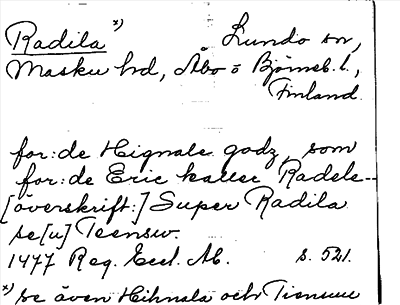 Radila x) Lundo sn,
Masku hd, Åbo o Björneb. l.,
Finland.
for:de Hignale godz, som
for:de Eric kaller Radele--
[överskrift:] Super Radila
se[u] Teensw.
1477 Reg. Eccl. Ab. s. 521.
x) se även Hihnala och Tiensuu